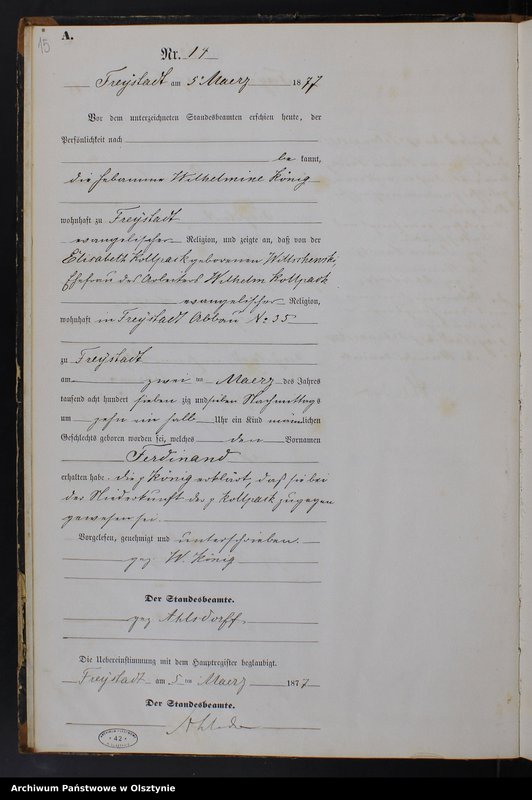 15
A.
Nr. 14
Freystadt am 5ᵗ Maerz 1877
Vor dem unterzeichneten Standesbeamten erschien heute, der
Persönlichkeit nach
be kannt,
die Hebamme Wilhelmine König
wohnhaft zu Freystadt
evangelischer Religion, und zeigte an, daß von der
Elisabeth Kollpack geborenen
Ehefrau des Arbeiters Wilhelm Kollpack
evangelischer Religion,
wohnhaft in Freystadt Abbau No 35
zu Freystadt
am zwei ten Maerz des Jahres
tausend acht hundert sieben zig und sieben Nachmittags
um zehn ein halb Uhr ein Kind männlichen
Geschlechts geboren worden sei, welches den Vornamen
Ferdinand
erhalten habe. die p König erklärt, daß sie bei
der Niederkunft der p Kollpack zugegen
gewesen sei.
Vorgelesen, genehmigt und unterschrieben.
gez W. König
Der Standesbeamte.
gez Ahlsdorff
Die Uebereinstimmung mit dem Hauptregister beglaubigt.
Freystadt am 5 ten Maerz 1877
Der Standesbeamte.
42
Archiwum Państwowe w Olsztynie